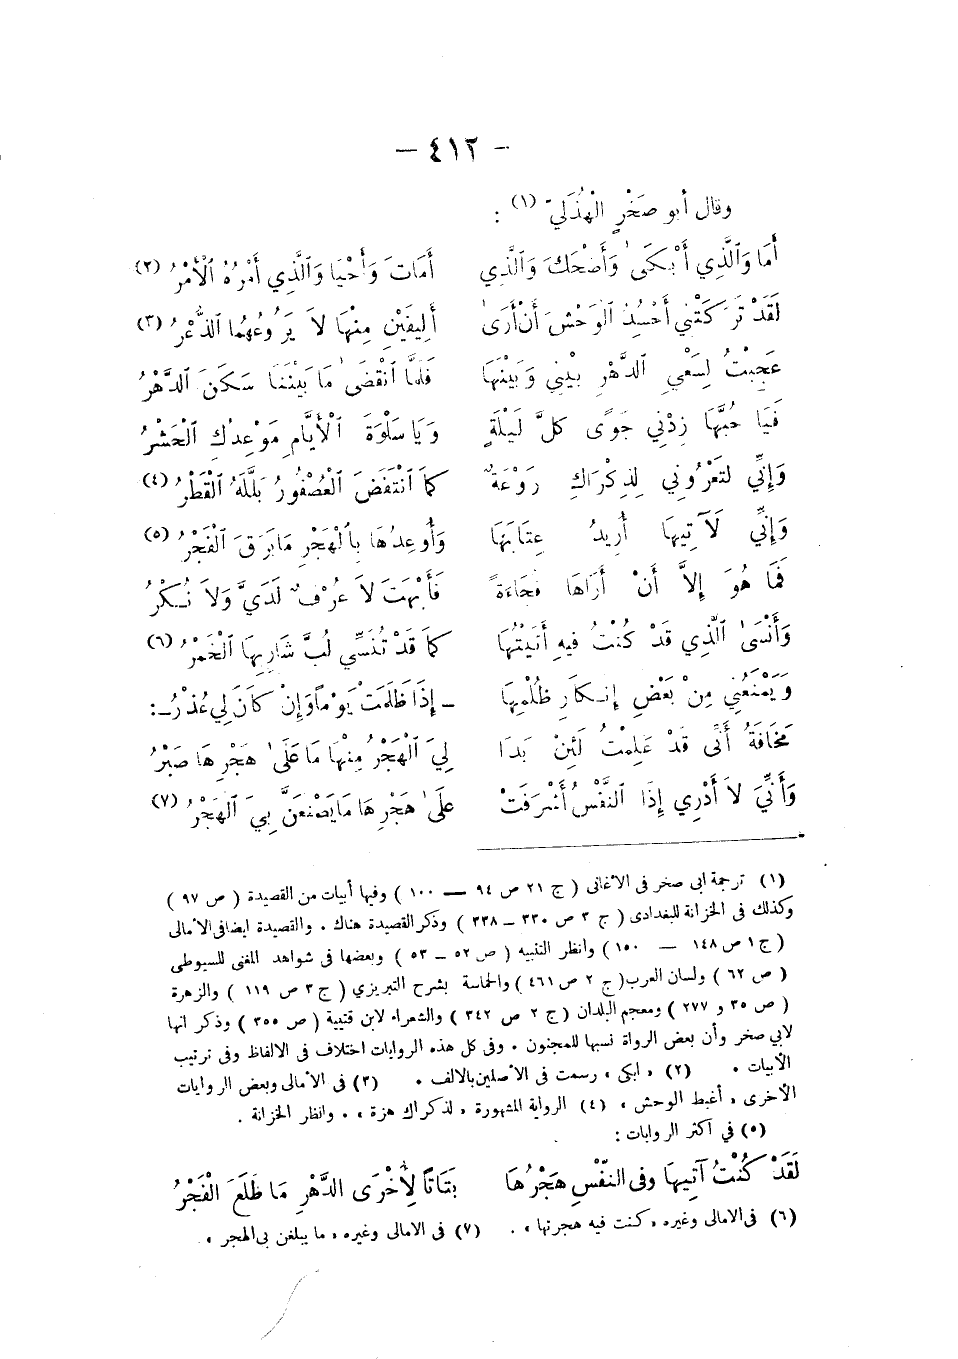 — ٤١٢ —
وقال أبو صَخْرٍ الْهُذَلِيّ (١) :
أَمَا وَٱلَّذِي أَبْكَىٰ وَأَضْحَكَ وَٱلَّذِي أَمَاتَ وَأَحْيَا وَٱلَّذِي أَمْرُهُ ٱلْأَمْرُ (٢)
لَقَدْ تَرَكَتْنِي أَحْسُدُ ٱلْوَحْشَ أَنْ أَرَىٰ أَلِيفَيْنِ مِنْهَا لاَ يَرُوعُهُما ٱلذُّعْرُ (٣)
عَجِبْتُ لِسَعْيِ ٱلدَّهْرِ بَيْنِي وَبَيْنَهَا فَلمَّا ٱنْقَضَىٰ مَا بَيْنَنَا سَكَنَ ٱلدَّهْرُ
فَيَا حُبَّهَا زِدْنِي جَوًى كلَّ لَيْلَةٍ وَيَا سَلْوَةَ ٱلْأَيَّامِ مَوْعِدُكِ ٱلْحَشْرُ
وَإِنِّي لَتَعْرُونِي لِذِكْرَاكِ رَوْعَةٌ كمَا ٱنْتَفَضَ ٱلْعُصْفُورُ بَلَّلَهُ ٱلْقَطْرُ (٤)
وَإِنِّي لَآتِيهَا أُرِيدُ عِتَابَهَا وَأُوعِدُهَا بِٱلْهَجْرِ مَا بَرَقَ ٱلْفَجْرُ (٥)
فَمَا هُوَ إِلاَّ أَنْ أَرَاهَا فُجَاءَةً فَأُبْهَتَ لاَ عُرْفٌ لَدَيَّ وَلاَ نُكْرُ
وَأَنْسَىٰ ٱلَّذِي قَدْ كُنْتُ فِيهِ أَتَيْتُهَا كمَا قَدْ تُنَسِّي لُبَّ شَارِبِهَا ٱلْخَمْرُ (٦)
وَيَمْنَعُنِي مِنْ بَعْضِ إِنْكَارِ ظُلْمِهَا — إِذَا ظَلَمَتْ يَوْمًا وَإِنْ كَانَ لِي عُذْرُ — :
مَخَافَةُ أَنِّى قَدْ عَلِمْتُ لَئِنْ بَدَا لِيَ ٱلْهَجْرُ مِنْهَا مَا عَلَىٰ هَجْرِهَا صَبْرُ
وَأَنِّيَ لاَ أَدْرِي إِذَا ٱلنَّفْسُ أَشْرَفَتْ عَلَىٰ هَجْرِهَا مَا يَصْنَعَنَّ بِيَ ٱلْهَجْرُ (٧)
(١) ترجمة ابى صخر فى الأغانى ( ج ٢١ ص ٩٤ — ١٠٠ ) وفيها أبيات من القصيدة ( ص ٩٧ )
وكذلك فى الخزانة للبغدادى ( ج ٣ ص ٣٣٠ — ٣٣٨ ) وذكر القصيدة هناك . والقصيدة ايضا فى الأمالى
( ج ١ ص ١٤٨ — ١٥٠ ) وانظر التنبيه ( ص ٥٢ — ٥٣ ) وبعضها فى شواهد المغنى للسيوطى
( ص ٦٢ ) ولسان العرب ( ج ٢ ص ٤٦١ ) والحماسة بشرح التبريزي ( ج ٣ ص ١١٩ ) والزهرة
( ص ٣٥ و ٢٧٧ ) ومعجم البلدان ( ج ٢ ص ٣٤٢ ) والشعراء لابن قتيبة ( ص ٣٥٥ ) وذكر انها
لابي صخر وأن بعض الرواة نسبها للمجنون . وفى كل هذه الروايات اختلاف فى الالفاظ وفى ترتيب
الأبيات . (٢) « ابكى » رسمت فى الأصلين بالالف . (٣) فى الأمالى وبعض الروايات
الأخرى « أغبط الوحش » (٤) الرواية المشهورة « لذكراك هزة » . وانظر الخزانة .
(٥) في أكثر الروايات :
لَقَدْ كُنْتُ آتِيهَا وفى النّفْسِ هَجْرُهَا بَتَاتًا لِأُخْرَى الدَّهْرِ مَا طَلَعَ الْفَجْرُ
(٦) فى الامالى وغيره « كنت فيه هجرتها » . (٧) فى الامالى وغيره « ما يبلغن بى الهجر »